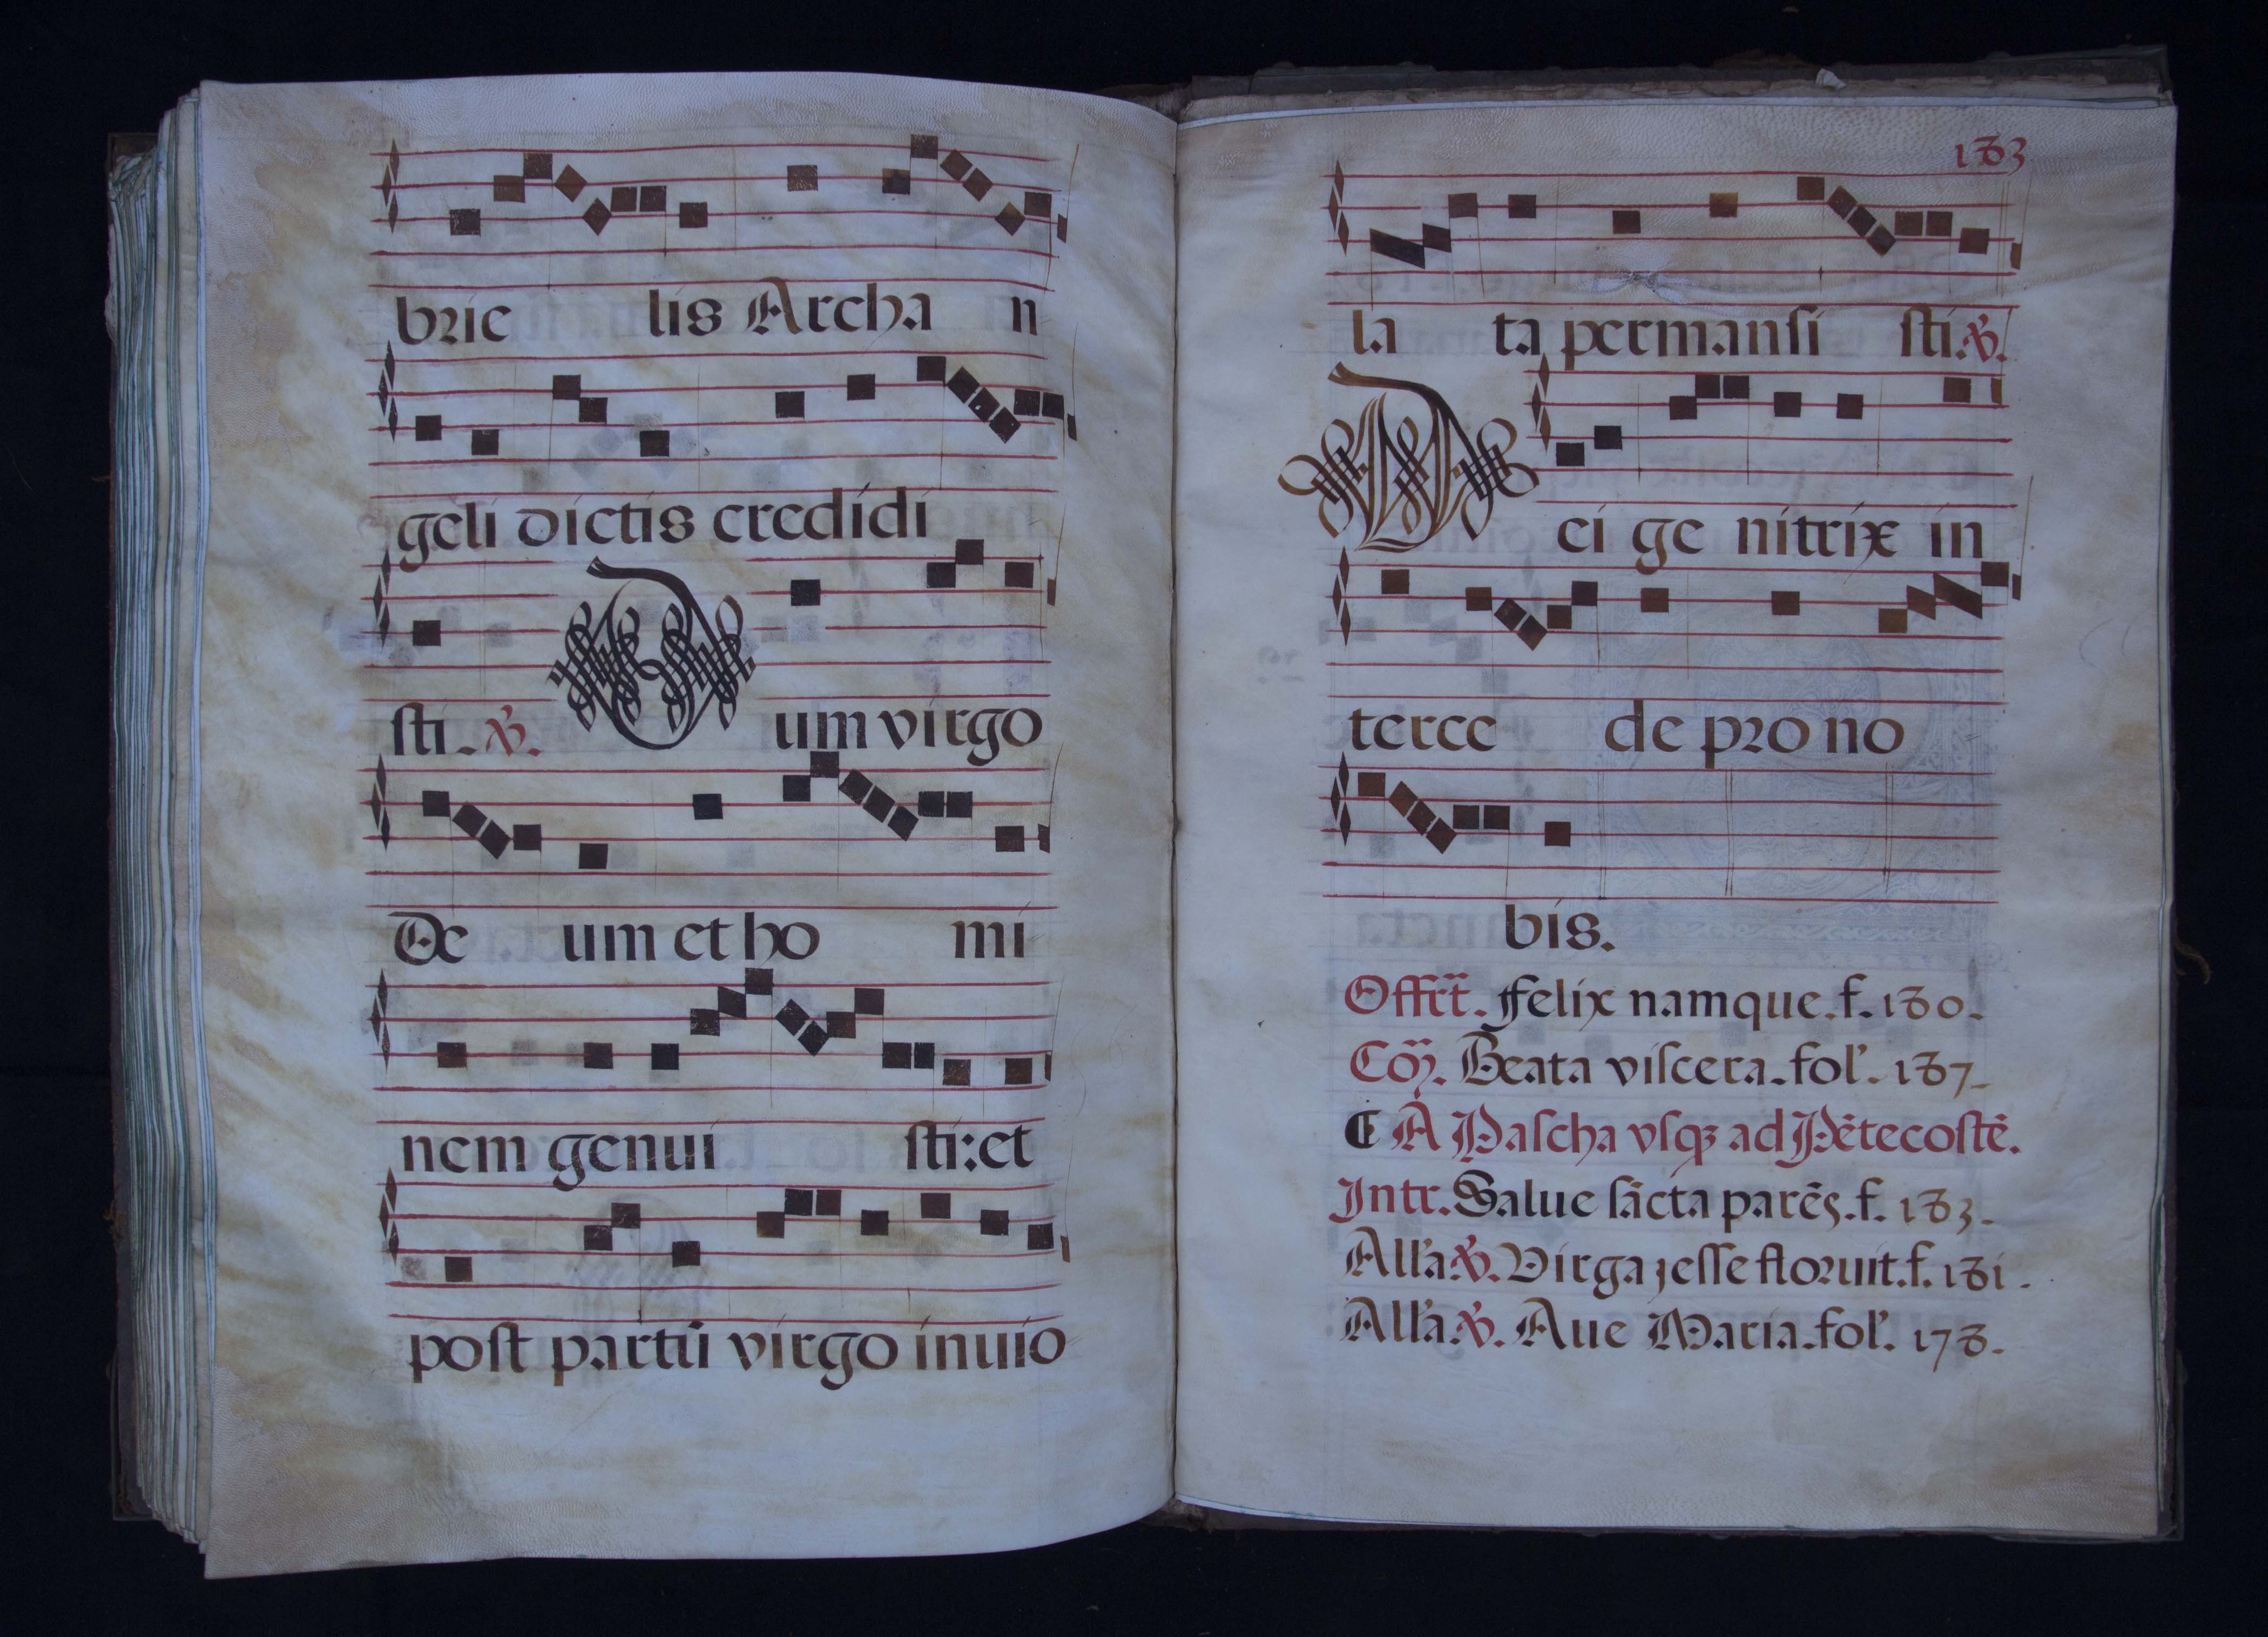 bric lis Archa n
geli dictis credidi
sti. ℣. Dum virgo
De um et ho mi
nem genui sti: et
post partū virgo inuio
183
la ta permansi sti. ℣.
Dei ge nitrix in
terce de pro no
bis.
Offrt̄. Felix namque. f. 180.
Cō. Beata viscera. fol'. 187.
C A Pascha vsq₃ ad Pētecostē.
Intr. Salue sācta parēs. f. 183.
All'a ℣. Virga jesse floruit. f. 181.
All'a ℣. Aue Maria. fol'. 178.